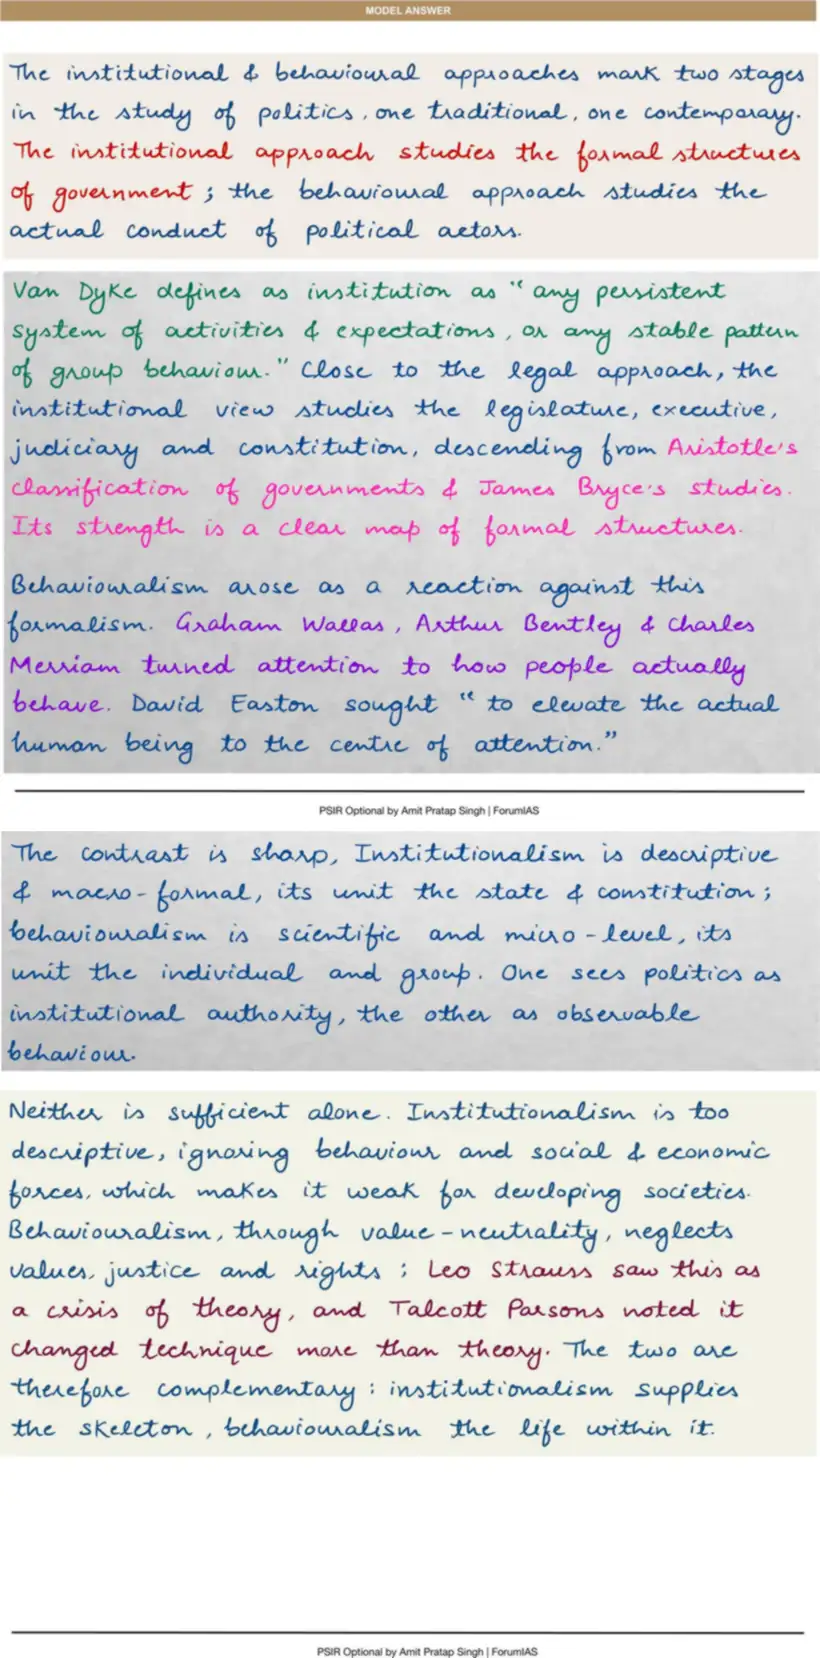 MODEL ANSWER
The institutional & behavioural approaches mark two stages
in the study of politics, one traditional, one contemporary.
The institutional approach studies the formal structures
of government ; the behavioural approach studies the
actual conduct of political actors.
Van Dyke defines as institution as "any persistent
system of activities & expectations, or any stable pattern
of group behaviour." Close to the legal approach, the
institutional view studies the legislature, executive,
judiciary and constitution, descending from Aristotle's
classification of governments & James Bryce's studies.
Its strength is a clear map of formal structures.
Behaviouralism arose as a reaction against this
formalism. Graham Wallas, Arthur Bentley & Charles
Merriam turned attention to how people actually
behave. David Easton sought "to elevate the actual
human being to the centre of attention."
PSIR Optional by Amit Pratap Singh | ForumIAS
The contrast is sharp, Institutionalism is descriptive
& macro-formal, its unit the state & constitution ;
behaviouralism is scientific and micro-level, its
unit the individual and group. One sees politics as
institutional authority, the other as observable
behaviour.
Neither is sufficient alone. Institutionalism is too
descriptive, ignoring behaviour and social & economic
forces, which makes it weak for developing societies.
Behaviouralism, through value-neutrality, neglects
values, justice and rights ; Leo Strauss saw this as
a crisis of theory, and Talcott Parsons noted it
changed technique more than theory. The two are
therefore complementary : institutionalism supplies
the skeleton, behaviouralism the life within it.
PSIR Optional by Amit Pratap Singh | ForumIAS